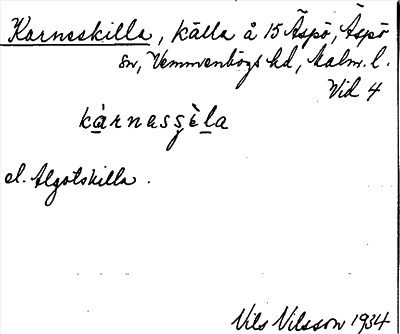 Karneskilla, källa å 15 Äspö, Äspö
sn, Vemmenhögs hd, Malm. l.
Vid 4
kàrnesşèla
el. Algotskilla.
Nils Nilsson 1934